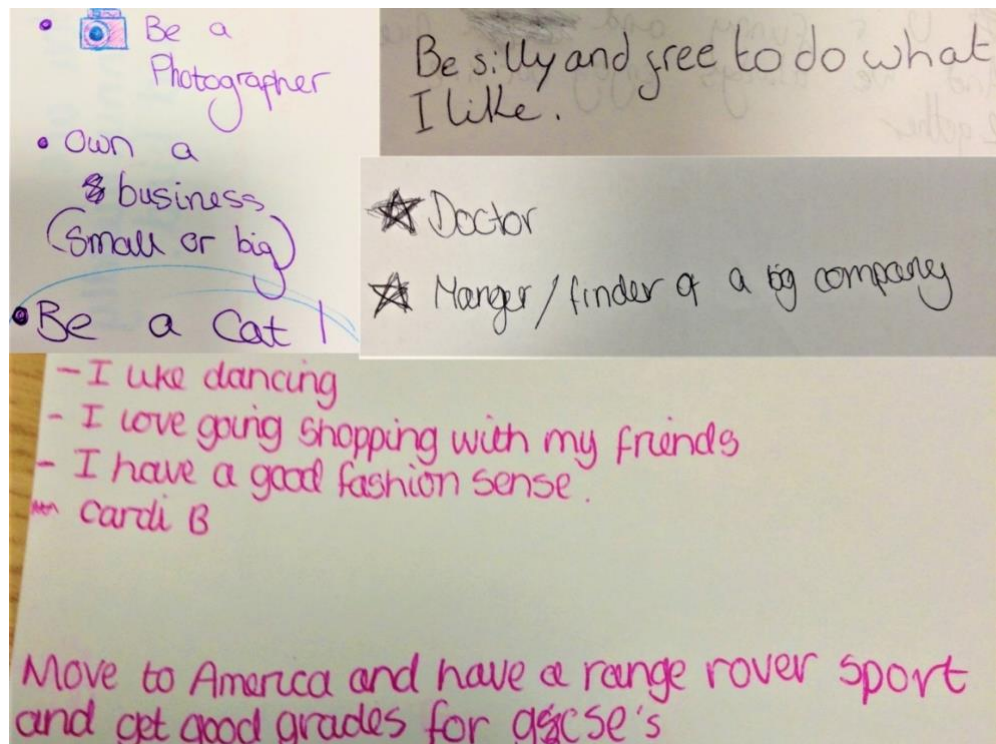 Be a
Photographer
Own a
business
(Small or big)
Be a Cat!
Be silly and free to do what
I like.
Doctor
Manger/finder of a big company
- I like dancing
- I love going shopping with my friends
- I have a good fashion sense.
- cardi B
Move to America and have a range rover sport
and get good grades for gcse's